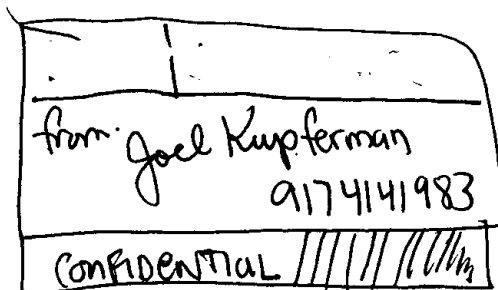 from: Joel Kupferman
9174141983
CONFIDENTIAL